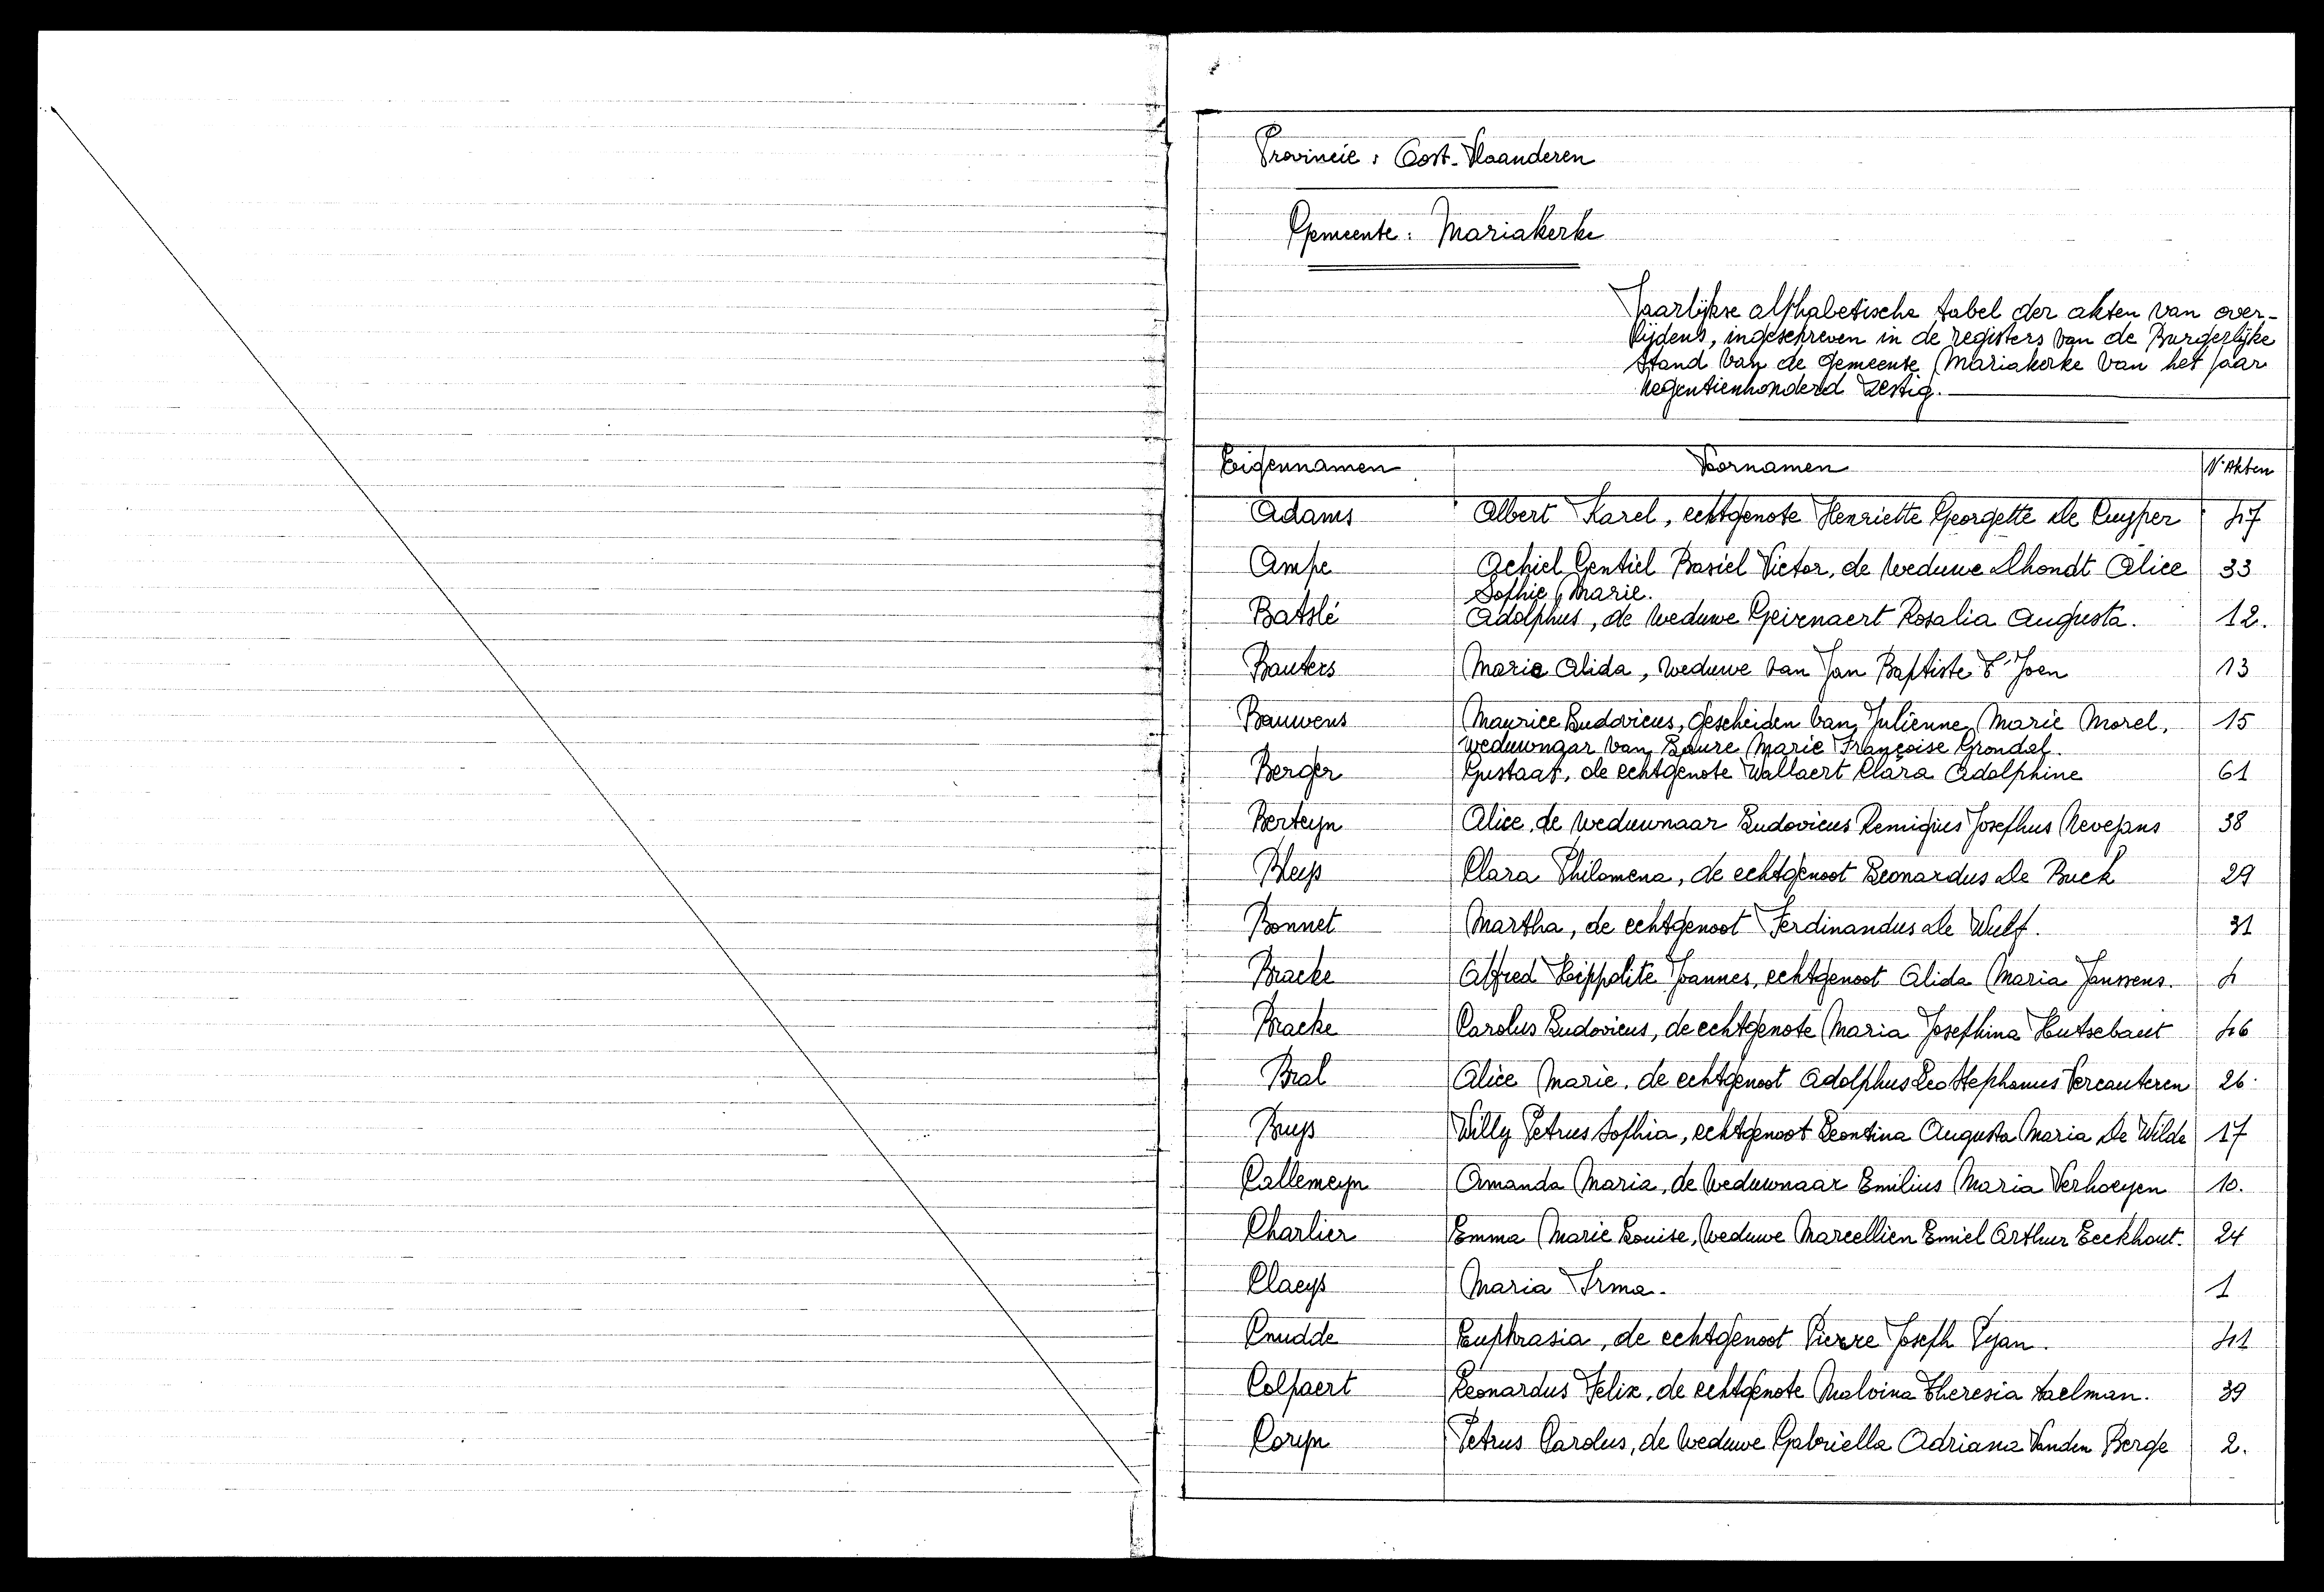 Provincie : Oost-Vlaanderen
Gemeente : Mariakerke
Jaarlijkse alphabetische tabel der akten van over-
lijdens, ingeschreven in de registers van de Burgerlijke
stand van de gemeente Mariakerke van het jaar
negentienhonderd zestig.
Eigennamen Voornamen N. Akten
Adams Albert Karel, echtgenote Henriette Georgette De Cuyper 47
Ampe Achiel Gentiel Basiel Victor, de weduwe Dhondt Alice 33
Sophie Marie.
Batslé Adolphus, de weduwe Geirnaert Rosalia Augusta. 12.
Bauters Marie Alida, weduwe van Jan Baptiste T'Joen 13
Bauwens Maurice Ludovicus, gescheiden van Julienne Marie Morel, 15
weduwnaar van Laure Marie Françoise Grondel.
Berger Gustaaf, de echtgenote Wallaert Clara Adolphine 61
Berteyn Alice, de weduwnaar Ludovicus Remigius Josephus Nevejans 38
Bleys Clara Philomena, de echtgenoot Leonardus De Buck 29
Bonnet Martha, de echtgenoot Ferdinandus De Wulf. 31
Bracke Alfred Hippolite Joannes, echtgenoot Alida Maria Janssens. 4
Bracke Carolus Ludovicus, de echtgenote Maria Josephina Hutsebaut 46
Bral Alice Marie, de echtgenoot Adolphus Leo Stephanus Vercauteren 26
Buys Willy Petrus Sophia, echtgenoot Leontina Augusta Maria De Wilde 17
Callemeyn Amanda Maria, de weduwnaar Emilius Maria Verhoeyen 10.
Charlier Emma Marie Louise, weduwe Marcellien Emiel Arthur Eeckhout. 24
Claeys Maria Irma. 1
Cnudde Euphrasia, de echtgenoot Pierre Joseph Pyan. 41
Colpaert Leonardus Felix, de echtgenote Malvina Theresia Haelman. 39
Coryn Petrus Carolus, de weduwe Gabriella Adriana Vanden Berge 2.